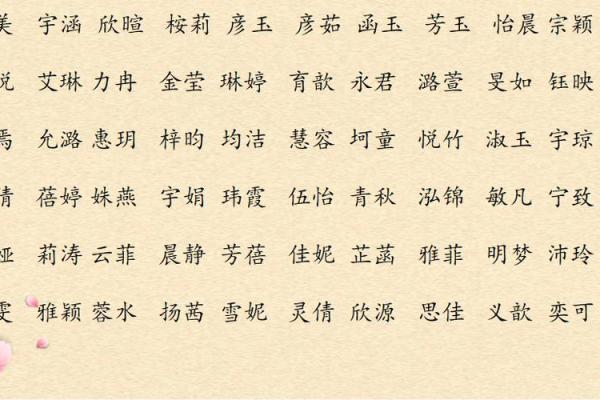 美 宇涵 欣暄 桉莉 彦玉 彦茹 函玉 芳玉 怡晨 宗颖
悦 艾琳 力冉 金莹 琳婷 育歆 永君 潞萱 旻如 钰映
焉 允潞 惠玥 梓昀 均洁 慧容 坷童 悦竹 淑玉 宇琼
倩 蓓婷 姝燕 宇娟 玮霞 伍怡 青秋 泓锦 敏凡 宁致
娅 莉涛 云菲 晨静 芳蓓 佳妮 芷菡 雅菲 明梦 沛玲
雯 雅颖 蓉水 扬茜 雪妮 灵倩 欣源 思佳 义歆 奕可